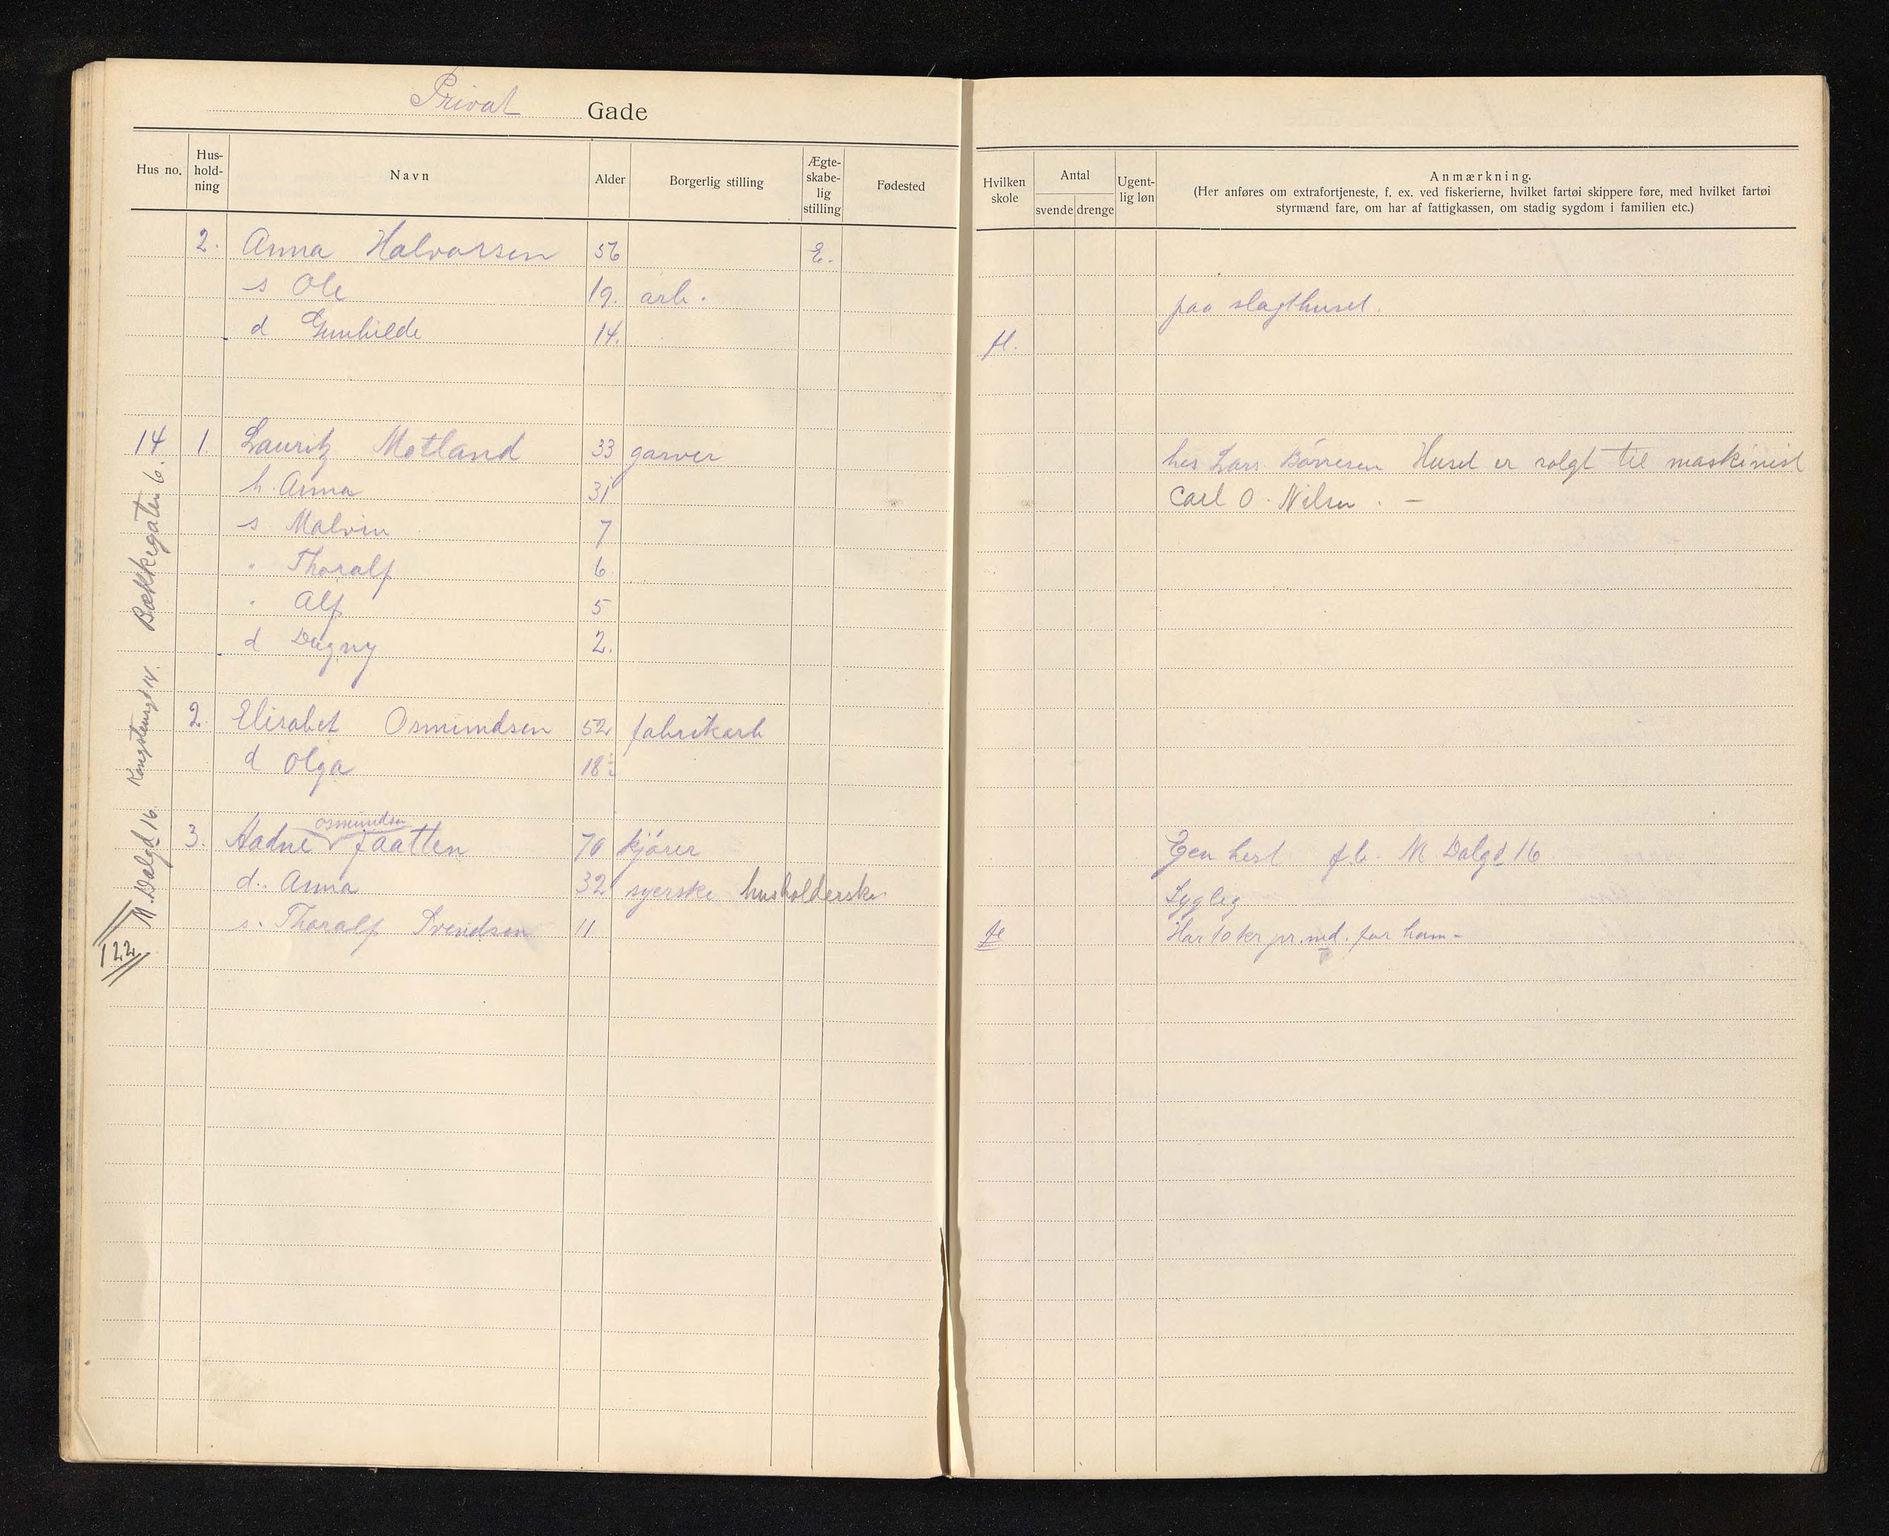 Privat Gade
Hus no. Hus-hold-ning Navn Alder Borgerlig stilling Ægte-skabe-lig stilling Fødested Hvilken skole Antal svende drenge Ugent-lig løn Anmærkning.
(Her anføres om extrafortjeneste, f. ex. ved fiskerierne, hvilket fartøi skippere føre, med hvilket fartøi
styrmænd fare, om har af fattigkassen, om stadig sygdom i familien etc.)
2. Anna Halvorsen 56 E.
s Ole 19. arb. paa slagthuset.
d Gunhilde 14. fl.
14 1. Lauritz Motland 33 garver hos Lars Börresen Huset er solgt til maskinist
h. Anna 31 Carl O. Nilsen. –
s Malvin 7
" Thoralf 6
" Alf 5
d Dagny 2.
2. Elisabet Osmundsen 52 fabrikarb
d Olga 18
osmundsen
3. Aadne Faatten 70 kjører Egen hest fl. N Dalgd 16
d. Anna 32 syerske husholderske Syglig
s. Thoralf Svendsen 11 fl Har 10 kr pr. md. for ham –
Bækkegaten 6.
N. Dalgd 16.
122